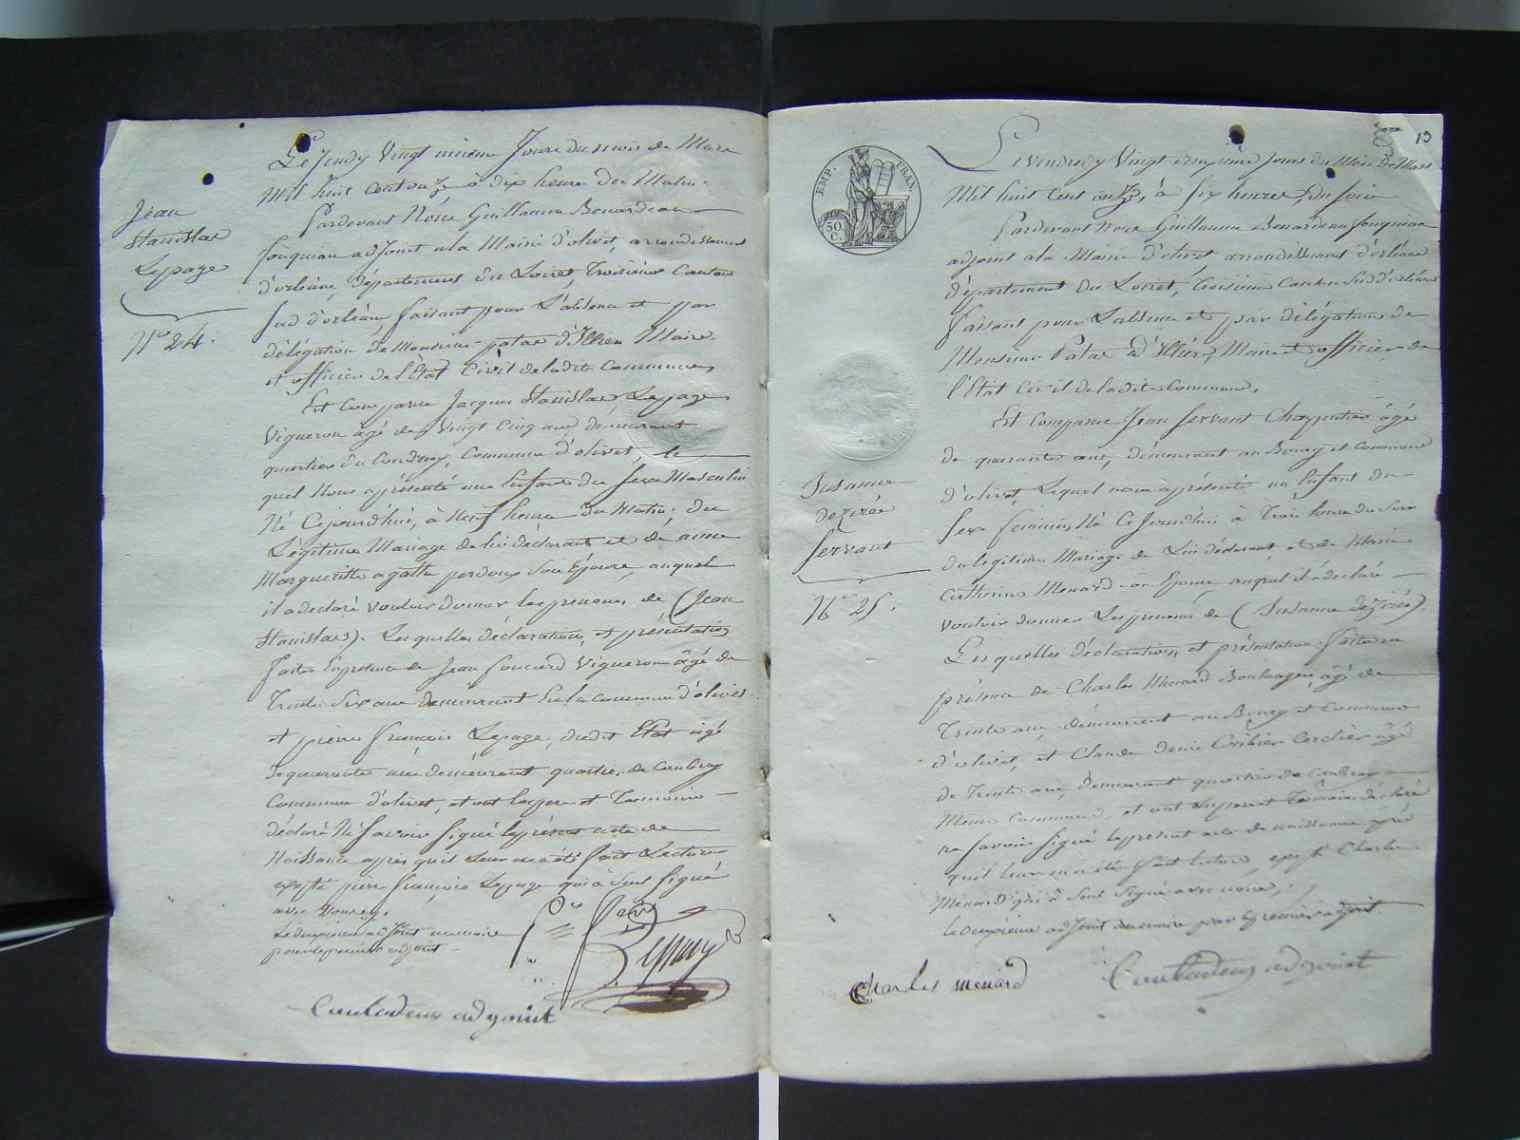 Jean
Stanislas
Lepage
N° 24.
Le Jeudy Vingt unieme Jour du mois de Mars
Mil huit cent onze à dix heure du Matin.
Pardevant Nous Guillaume Benardeau
fouqueau adjoint a la Mairie d'olivet arrondissement
d'orléans, département du Loiret, troisieme Canton
sud d'orléans faisant pour L'absence et par
délégation de Monsieur patas d'Illiers Maire
et officier de l'état Civil de ladite Commune
Est Comparu Jacques Stanislas Lepage
Vigneron âgé de Vingt Cinq ans demeurant
quartier du Coudray, Commune d'olivet, le
quel Nous a présenté un Enfant du sexe Masculin
Né Cejourd'hui, à Neuf heure du Matin, du
Légitime Mariage de lui déclarant et de anne
Margueritte agatte perdoux son Epouse, auquel
il a declaré vouloir donner les prenoms de (Jean
Stanislas). Lesquelles déclaration et présentation
faites En presence de Jean Vigneron âgé de
Trente Six ans demeurant Sus la commune d'olivet
et pierre françois Lepage, dudit Etat âgé
de quarante ans demeurant quartier du Caubray
Commune d'olivet, et ont les pere et Temoins
déclaré Ne savoir signé le présent acte de
Naissance après qu'il Leur en a été fait Lecture
excepté pierre françois Lepage qui a seul signé
avec Nous.
Le deuxieme adjoint en mairie
pour le premier adjoint
Lepage
adjoint
EMP. FRAN.
50.
C.
13
Susanne
dezirée
Servant
N° 25.
Le Vendredy Vingt deuxieme jour du Mois de Mars
Mil huit Cent onze, à six heures du soir
Pardevant Nous Guillaume Benardeau fouqueau
adjoint a la Mairie d'olivet arrondissement d'orléans
département du Loiret, troisieme Canton Sud d'orléans
faisant pour L'absence et par délégation de
Monsieur Patas d'Illiers Maire et officier de
l'Etat Civil de ladite Commune,
Est Comparu Jean Servant Charpentier âgé
de quarante ans, demeurant au Bourg et Commune
d'olivet, Lequel nous a présenté un Enfant du
sexe feminin, Né Ce Jourd'hui à Trois heure du soir
du légitime Mariage de Lui déclarant, et de Marie
Catherine Menard son Epouse, auquel il a déclaré
vouloir donner Les prenoms de (Susanne dezirée)
Lesquelles déclaration et présentation faites en
présence de Charles Menard Boulanger âgé de
Trente ans, demeurant au Bourg et Commune
d'olivet, et Claude denis Cordier âgé
de Trente ans, demeurant quartier du Caubray
Même Commune, et ont les pere et Témoin déclaré
ne savoir signé le present acte de naissance après
qu'il leur en a été fait lecture, excepté Charles
Menard qui a seul signé avec nous,
le deuxieme adjoint en mairie pour le premier adjoint
Charles menard
adjoint